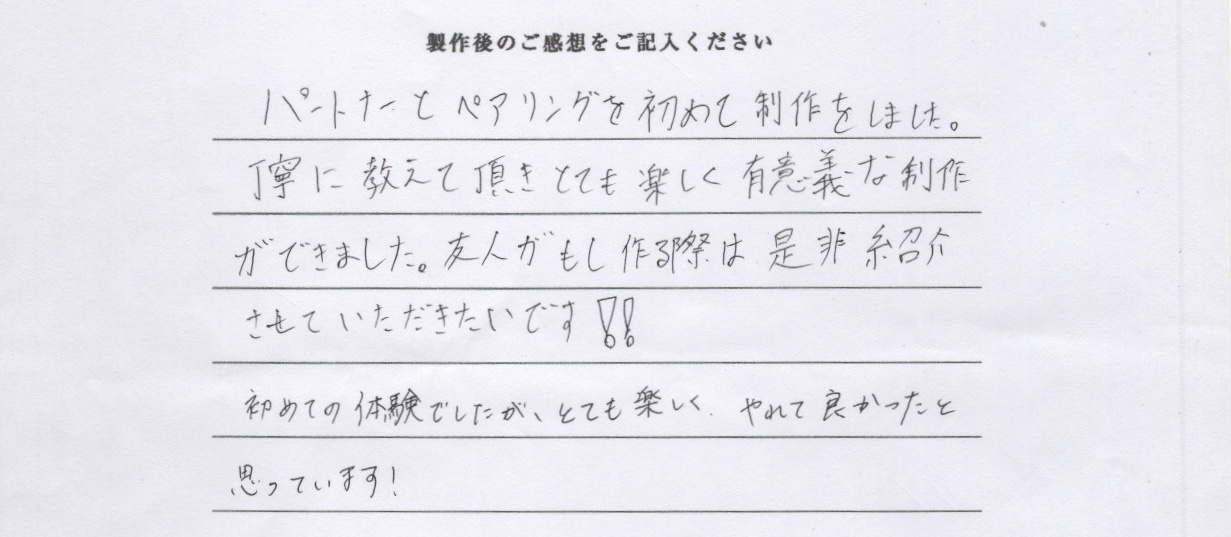 製作後のご感想をご記入ください
パートナーとペアリングを初めて制作をしました。
丁寧に教えて頂きとても楽しく有意義な制作
ができました。友人がもし作る際は是非紹介
させていただきたいです!!
初めての体験でしたが、とても楽しく、やれて良かったと
思っています!